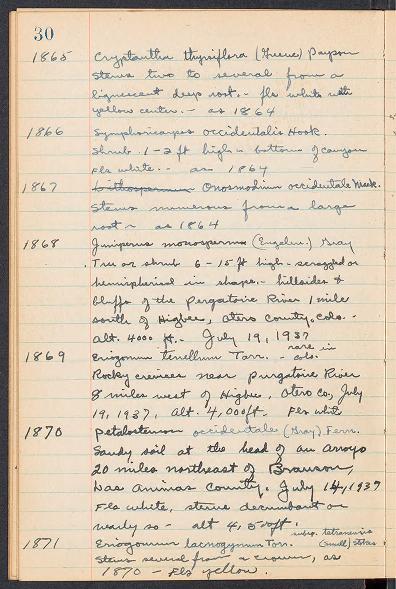 30
1865 Cryptantha thyrsiflora (Greene) Payson
Stems two to several from a
lignescent deep root. - fls white with
yellow center. - as 1864
1866 Symphoricarpos occidentalis Hook.
Shrub 1-2 ft high in bottom of canyon
Fls white. - as 1864
1867 Lithospermum Onosmodium occidentale Mack.
Stems numerous from a large
root - as 1864
1868 Juniperus monosperma (Engelm.) Gray
Tree or shrub 6-15 ft high - scraggled or
hemispherical in shape. - hillsides &
bluffs of the Purgatoire River 1 mile
south of Higbee, Otero County, Colo. -
Alt. 4000 ft. - July 19, 1937
1869 Eriogonum tenellum Torr. - rare in
Rocky crevices near Purgatoire River
8 miles west of Higbee, Otero Co., July
19, 1937, Alt. 4,000 ft. Fls white
1870 Petalostemon occidentale (Gray) Fern.
Sandy soil at the head of an arroyo
20 miles northeast of Branson,
Las Animas County. July 14, 1937
Fls white, stems decumbent or
nearly so - alt 4,500 ft.
1871 Eriogonum lachnogynum Torr.
Stems several from a crown, as
1870 - Fls yellow.